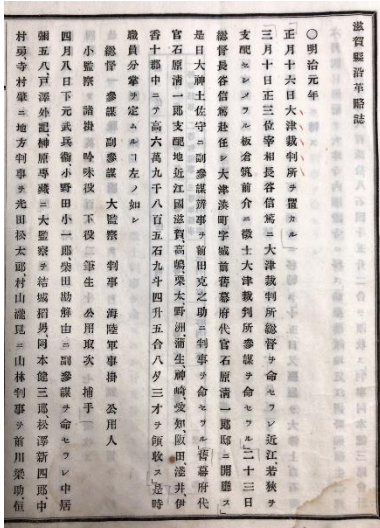 滋賀縣沿革略誌
〇明治元年
正月十六日大津裁判所ヲ置カル
三月十日正三位宰相長谷信篤ニ大津裁判所總督ヲ命セラレ近江、若狹ヲ
支配セシメラル板倉筑前介ニ徵士大津裁判所參謀ヲ命セラル二十三日
總督長谷信篤赴任シ大津湊町字城前舊幕府代官石原清一郎邸ニ開廳ス
是日大神土佐守ニ副參謀辨事ヲ前田克之助ニ判事ヲ命セラル舊幕府代
官石原清一郎支配地近江國滋賀、高嶋、栗太、野洲、蒲生、神崎、愛知、阪田、淺井、伊
香十郡中ニテ高六萬九千八百五石九斗四升五合八夕三才ヲ領收ス是時
職員分掌ヲ定ムルコ左ノ如シ
總督 參謀 副參謀 大監察 判事 海陸軍事掛 公用人
小監察 諸掛 吟味役 下役 筆生 公用取次 捕手
四月八日下元武兵衞、小野田小一郎、柴田勘解由ニ副參謀ヲ命セラレ中居
彌五八、戸澤外記、榊原專藏ニ大監察ヲ結城招男、岡本健三郎、松澤新四郎、中
村勇寺村肇ニ地方判事ヲ光田松太郎、村山瀧見ニ山林判事ヲ前川梁助、恒